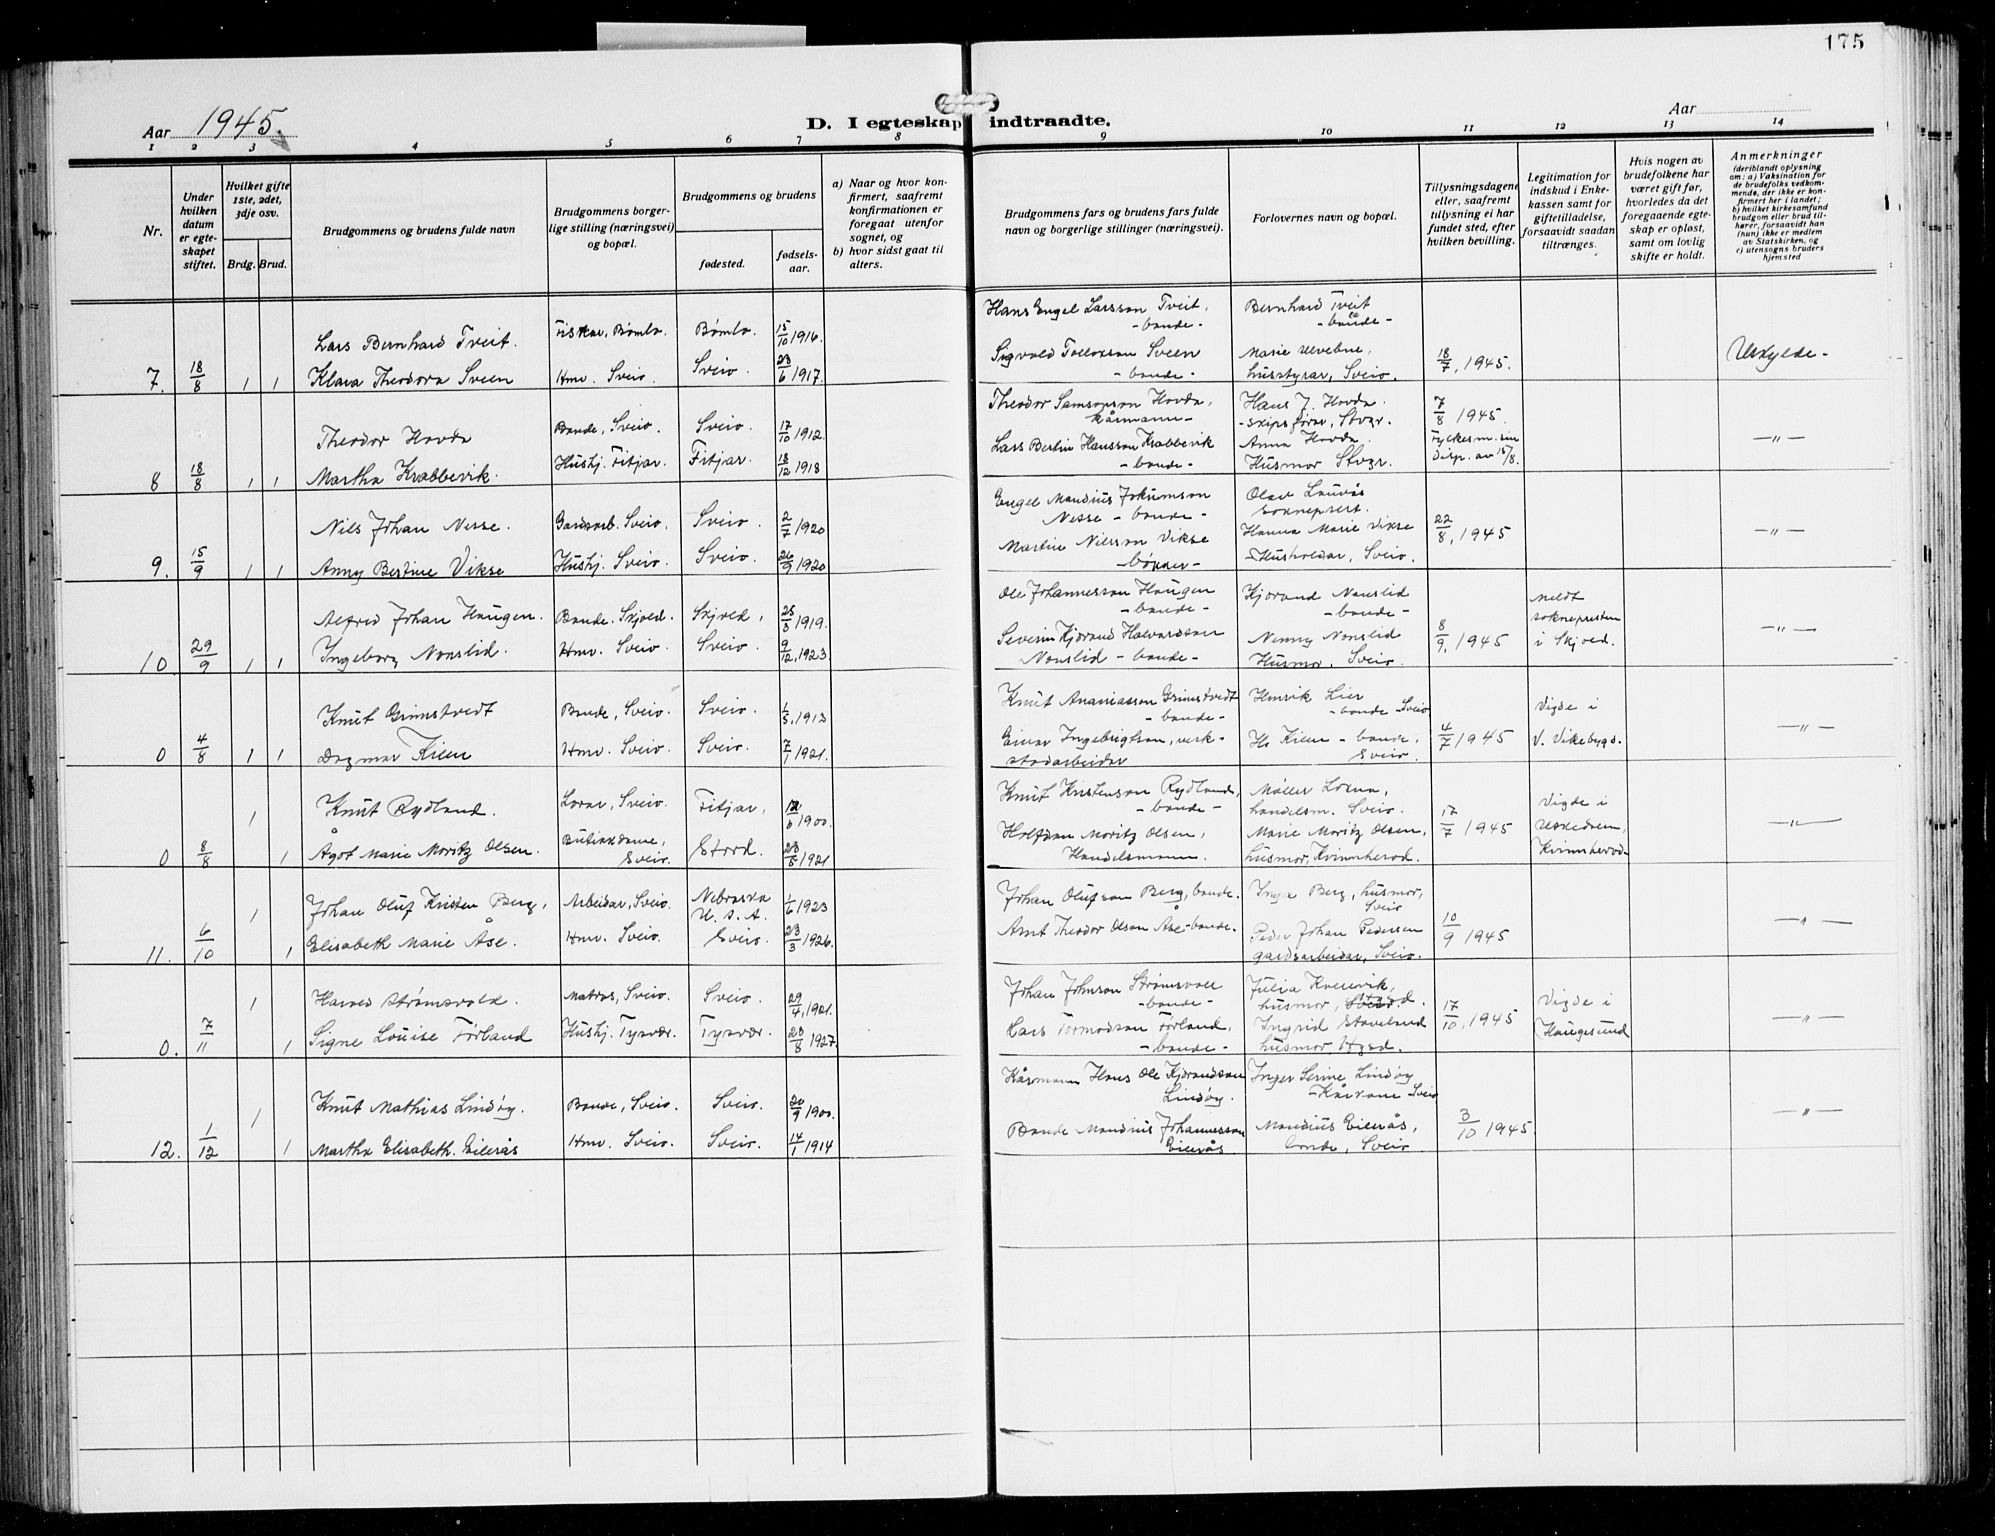 175
Aar 1945.
D. I egteskap indtraadte.
Aar
1 2 3 4 5 6 7 8 9 10 11 12 13 14
Nr.
Under hvilken datum er egte-skapet stiftet.
Hvilket gifte 1ste, 2det, 3dje osv.
Brdg. Brud.
Brudgommens og brudens fulde navn
Brudgommens borger-lige stilling (næringsvei) og bopæl.
Brudgommens og brudens
fødested.
fødsels-aar.
a) Naar og hvor kon-firmert, saafremt konfirmationen er foregaat utenfor sognet, og
b) hvor sidst gaat til alters.
Brudgommens fars og brudens fars fulde navn og borgerlige stillinger (næringsvei).
Forlovernes navn og bopæl.
Tillysningsdagene eller, saafremt tillysning ei har fundet sted, efter hvilken bevilling.
Legitimation for indskud i Enke-kassen samt for giftetilladelse, forsaavidt saadan tiltrænges.
Hvis nogen av brudefolkene har været gift før, hvorledes da det foregaaende egte-skap er opløst, samt om lovlig skifte er holdt.
Anmerkninger (deriblandt oplysning om: a) Vaksination for de brudefolks vedkom-mende, der ikke er kon-firmert her i landet; b) hvilket kirkesamfund brudgom eller brud til-hører, forsaavidt han (hun) ikke er medlem av Statskirken, og c) utensogns bruders hjemsted
Lars Bernhard Tveit. Fiskar, Bømlo. Bømlo. 15/10 1916. Hans Engel Larsson Tveit, - bonde - Bernhard Tveit - bonde -
7. 18/8 1 1 Klara Theodora Sveen Hmv. Sveio. Sveio. 23/6 1917. Sigvald Tolloxson Sveen - bonde - Marie Ulvebne, husstyrar, Sveio. 18/7, 1945. Uskylde -
Theodor Hovda Bonde, Sveio. Sveio. 17/10 1912. Theodor Samsonson Hovda, kårmann - Hans J. Hovda - skipsførar, Stvgr. 7/8 1945.
8 18/8 1 1 Martha Krabbevik. Hushj. Fitjar. Fitjar. 18/12 1918 Lars Bertin Hansson Krabbevik - bonde - Anna Hovda. Husmor Stvgr. disp. av 15/8. - " -
Nils Johan Nesse. Gardsarb. Sveio. Sveio. 2/7 1920 Engel Mandius Jokumson Nesse - bonde - Olav Lauvås sokneprest.
9. 15/9 1 1 Anny Bertine Vikse Hushj. Sveio. Sveio. 26/9 1920 Martin Nilsson Vikse Hanna Marie Vikse - Husholdar, Sveio. 22/8, 1945 - " -
Alfred Johan Haugen. Bonde. Skjold. Skjold, 25/3 1919. Ole Johannesson Haugen - bonde - Kjorand Nonslid - bonde - meldt soknepresten i Skjold.
10 29/9 1 1 Ingeborg Nonslid. Hmv. Sveio. Sveio. 9/12, 1923. Severin Kjorand Halvardson Nonslid - bonde - Nenny Nonslid Husmor, Sveio. 8/9, 1945 - " -
Knut Grimstvedt Bonde, Sveio. Sveio. 1/5, 1913 Knut Ananiasson Grimstvedt - bonde - Henrik Lier - bonde - Sveio
0 4/8 1 1 Dagmar Kien Hmv. Sveio. Sveio. 7/1 1921. Einar Ingebrigtson, verk-stadarbeidar Hs Kien - bonde, Sveio. 4/7 1945 Vigde i V. Vikebygd. - " -
Knut Rydland. 1 Lorar, Sveio. Fitjar, 1900. Knut Kristenson Rydland, - bonde - Møller Lorna, handelsm. Sveio.
0 8/8 1 Ågot Marie Moritz Olsen. Butikkdame, Sveio. Stord. 23/5 1921 Halfdan Moritz Olsen, Handelsmann. Marie Moritz Olsen, husmor, Kvinnherad. 17/7 1945 Vigde i Uskedalen, Kvinnherad - " -
Johan Oluf Kristen Berg, 1 Arbeidar, Sveio. Nebraska U.S.A. 1/6 1923 Johan Olufson Berg, bonde. Inga Berg, husmor, Sveio
11. 6/10 1 Elisabeth Marie Åse. Hmv. Sveio. Sveio. 23/3 1926. Arnt Theodor Olson Åse - bonde. Peder Johan Pedersen gardsarbeidar, Sveio. 10/9 1945 - " -
Harald Strømsvold. 1 Matros, Sveio. Sveio. 29/4, 1921. Johan Johnson Strømsvold - bonde - Julia Kvelevik, husmor,
0. 7/11 1 Signe Louise Førland Hushj. Tysvær. Tysvær. 23/8 1927. Hans Tormodson Førland, - bonde - Ingrid Staveland husmor, Hgsd. 17/10, 1945 Vigde i Haugesund - " -
Knut Mathias Lindøy. 1 Bonde, Sveio. Sveio. 20/9 1900. Kårmann Hans Ole Kjorandson Lindøy. Inger Serine Lindøy - Kårkone Sveio
12. 1/12 1 Martha Elisabeth Eilerås Hmv. Sveio. Sveio. 14/1 1914 Bonde Mandius Johannesson Eilerås Mandius Eilerås, bonde, Sveio. 3/10 1945. - " -